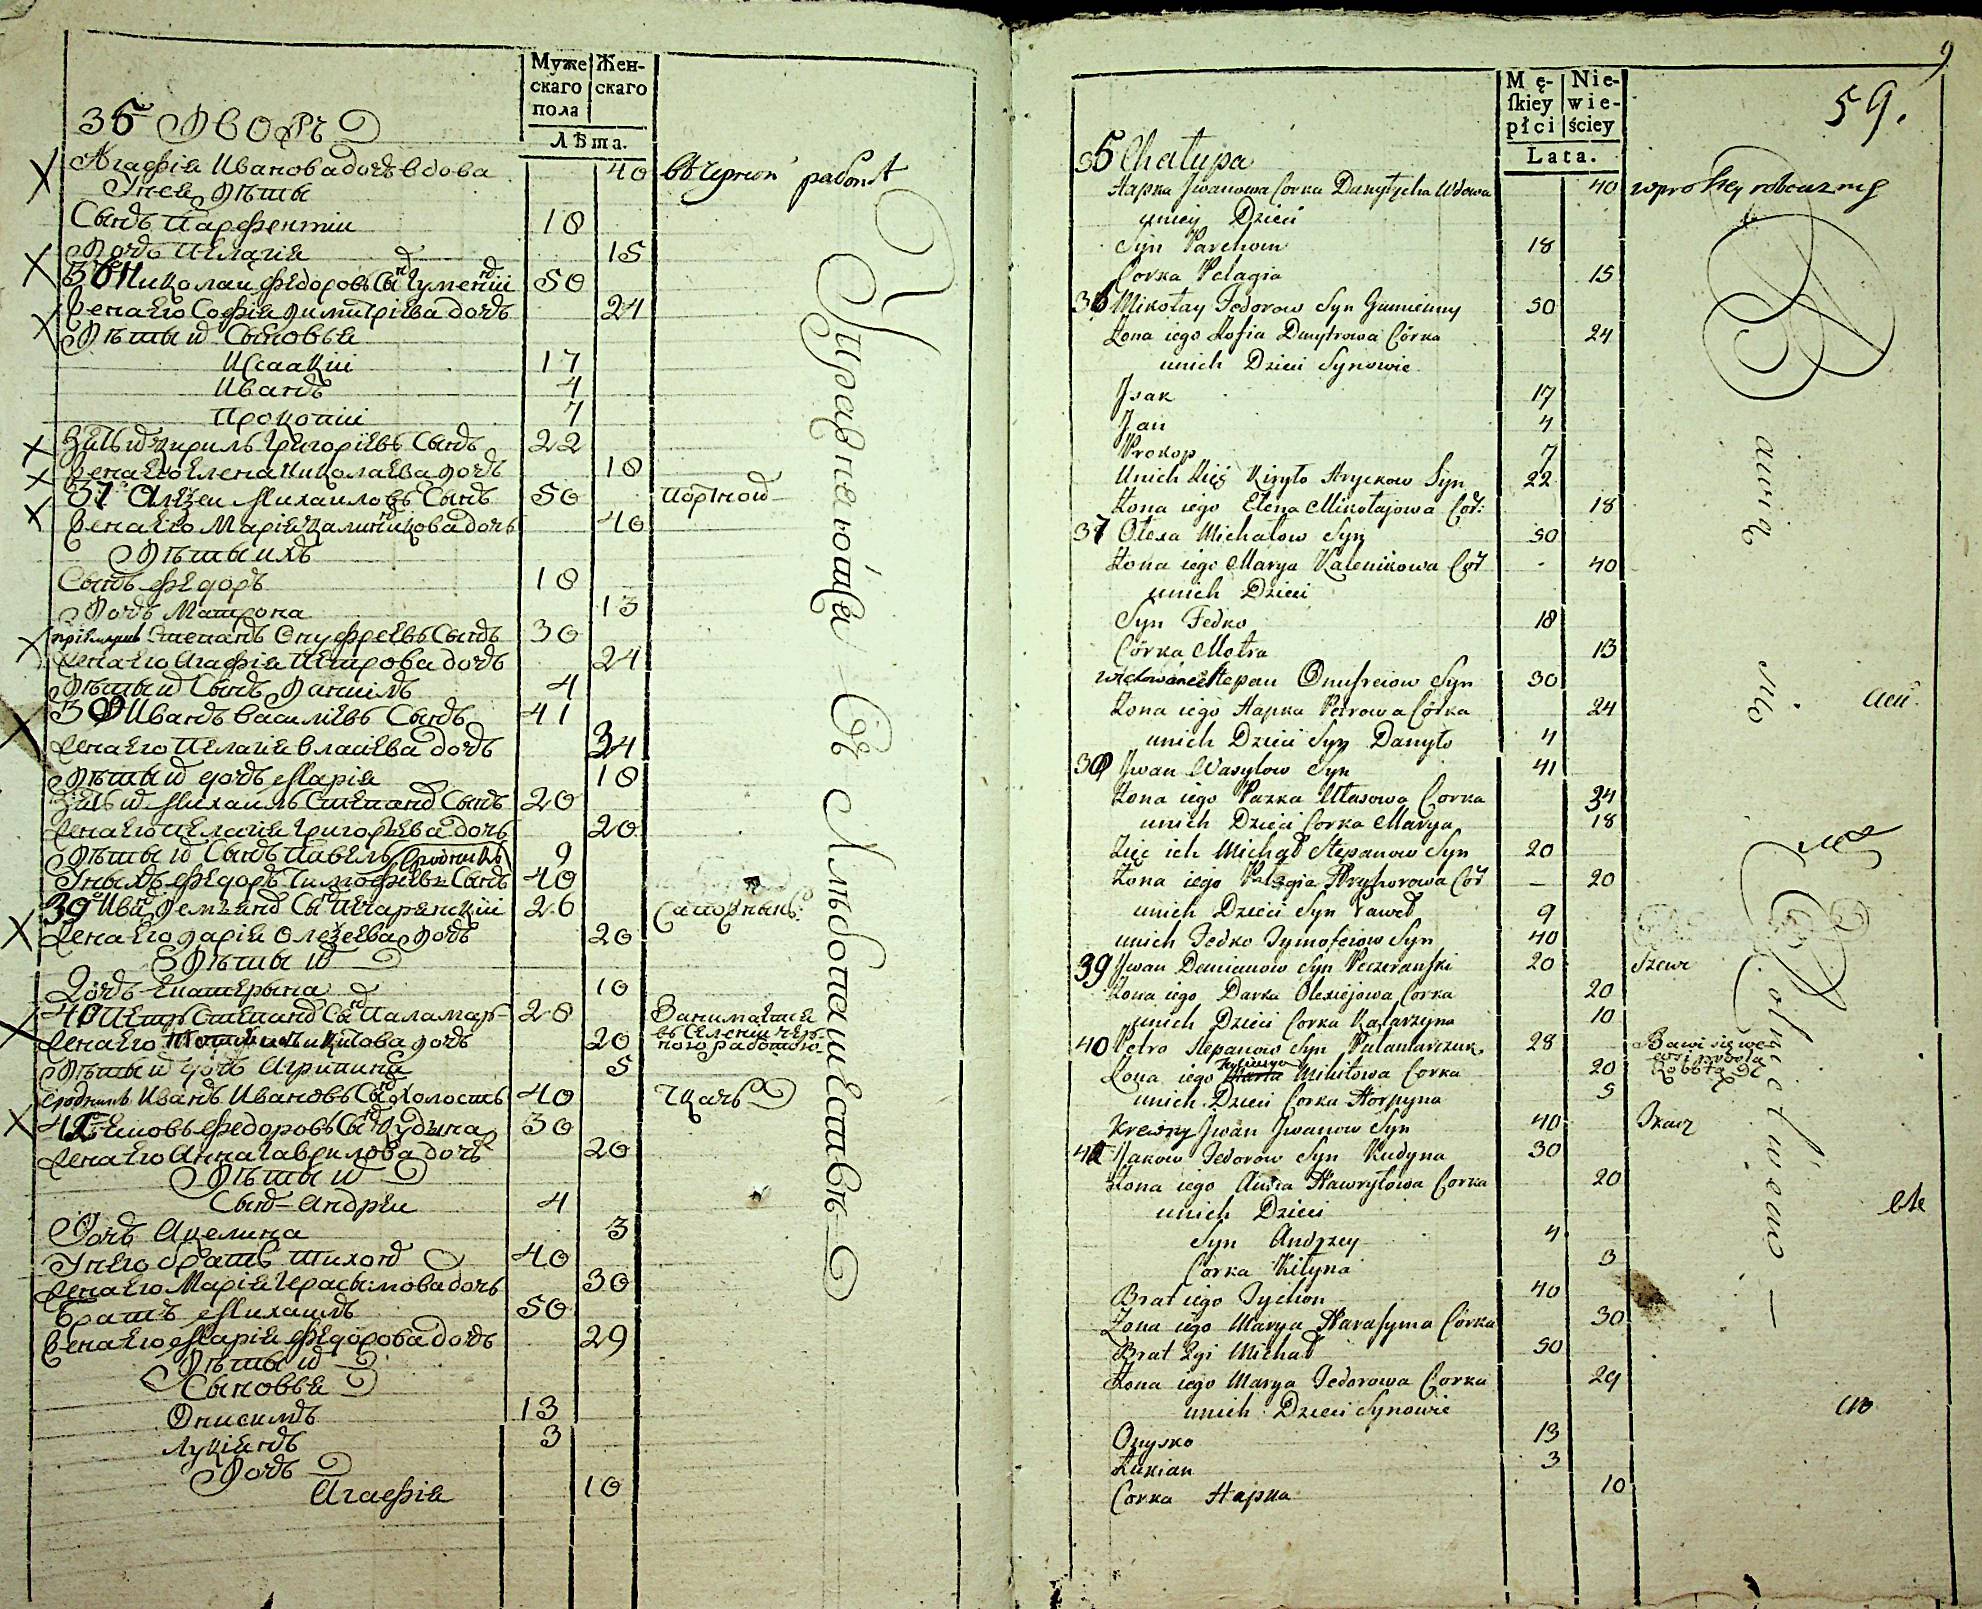 Муже
скаго
пола
Жен-
скаго
Лѣта.
35 Дворъ
Агафія Иванова дочь вдова 40 въ черной работѣ
У нея дѣты
Сынъ Парфентіи 18
Дочь Пелагія 15
36 Николаи Федоровъ Сынъ Гуменнiй 50
Жена Его Софія Димитріева дочь 24
Дѣты ихъ Сыновья
Исаакіи 17
Иванъ 4
Прокопіи 7
Зять ихъ Кирилъ Григоріевъ Сынъ 22
Жена Его Елена Николаева дочь 18
37 Алѣзеи Михаиловъ Сынъ 50 Портной
Жена Его Марія Калиникова дочь 40
Дѣты ихъ
Сынъ Федоръ 18
Дочь Матрона 13
пріемышъ Степанъ Онуфреевъ Сынъ 30
Жена Его Агафія Петрова дочь 24
Дѣты ихъ Сынъ Данііилъ 4
38 Иванъ Василіевъ Сынъ 41
Жена Его Пелагія Власіева дочь 34
Дѣты ихъ дочь Марія 18
Зять ихъ Михаилъ Степановъ Сынъ 20
Жена Его Пелагія Григорьева дочь 20
Дѣты ихъ Сынъ Павелъ 9
Сродникъ
У ныхъ Федоръ Тимофѣевъ Сынъ 40
39 Иванъ Демьяновъ Сынъ Печаренскій 26 Сапожныкъ
Жена Его Дарія Олеѯеева дочь 20
Дѣты ихъ
Дочь Екатерына 10
40 Петръ Степановъ Сынъ Паламар- 28 Занимается
въ селеніи чер-
ною работою
Жена Его Никитова дочь 20
Дѣты ихъ дочь Агрипина 5
Сродникъ Иванъ Ивановъ Сынъ Холостъ 40 Ткачъ
Яковъ Федоровъ Сынъ Кудына 30
Жена Его Анна Гаврилова дочь 20
Дѣты ихъ
Сынъ Андреи 4
Дочь Акелина 3
У него братъ Тихонъ 40
Жена Его Марія Герасымова дочь 30
Братъ Михаилъ 50
Жена Его Марія Федорова дочь 29
Дѣты ихъ
Сыновья
Онисимъ 13
Лукіянъ 3
Дочь
Агафія 10
Упражняются въ Хлѣбопашествѣ
9
59.
Mę-
ſkiey
płci
Nie-
wie-
ściey
Lata.
35 Chałupa
Hapka Jwanowa Corka Danyłycha Wdowa 40 w prostey robociznie
u niey Dzieci
Syn Parchom 18
Corka Pelagia 15
36 Mikołay Fedorow Syn Gumienny 50
Zona iego Zofia Dmytrowa Córka 24
u nich Dzieci Synowie
Jsak 17
Jan 4
Prokop 7
U nich Zięć Kiryło Hryckow Syn 22
Zona iego Elena Mikołajowa Cór: 18
37 Olexa Michałow Syn 50
Zona iego Marya Kalenikowa Cór 40
u nich Dzieci
Syn Fedko 18
Córka Motra 13
Stepan Onufreiow Syn 30
Zona iego Hapka Petrowa Córka 24
u nich Dzieci Syn Danyło 4
38 Jwan Wasylow Syn 41
Zona iego Pazka Ułasowa Corka 34
u nich Dzieci Corka Marya 18
Zięć ich Michał Stepanow Syn 20
Zona iego Pelagia Hryhorowa Cór 20
u nich Dzieci Syn Paweł 9
u nich Fedko Tymofeiow Syn 40
39 Jwan Demianow Syn Peczeranski 20 Szewc
Zona iego Darka Olexiejowa Corka 20
u nich Dzieci Corka Katarzyna 10
40 Petro Stepanow Syn Palamarczuk 28 Bawi się we
wsi prostą
robotą
Zona iego Mikitowa Corka 20
u nich Dzieci Corka Horpyna 5
Krewny Jwan Jwanow Syn 40 Tkacz
Jakow Fedorow Syn Kudyna 30
Zona iego Anna Hawryłowa Corka 20
u nich Dzieci
Syn Andrzey 4
Corka Kilyna 3
Brat iego Tychon 40
Zona iego Marya Harasyma Córka 30
Brat Michał 50
Zona iego Marya Fedorowa Corka 29
u nich Dzieci Synowie
Onysko 13
Lukian 3
Corka Hapka 10